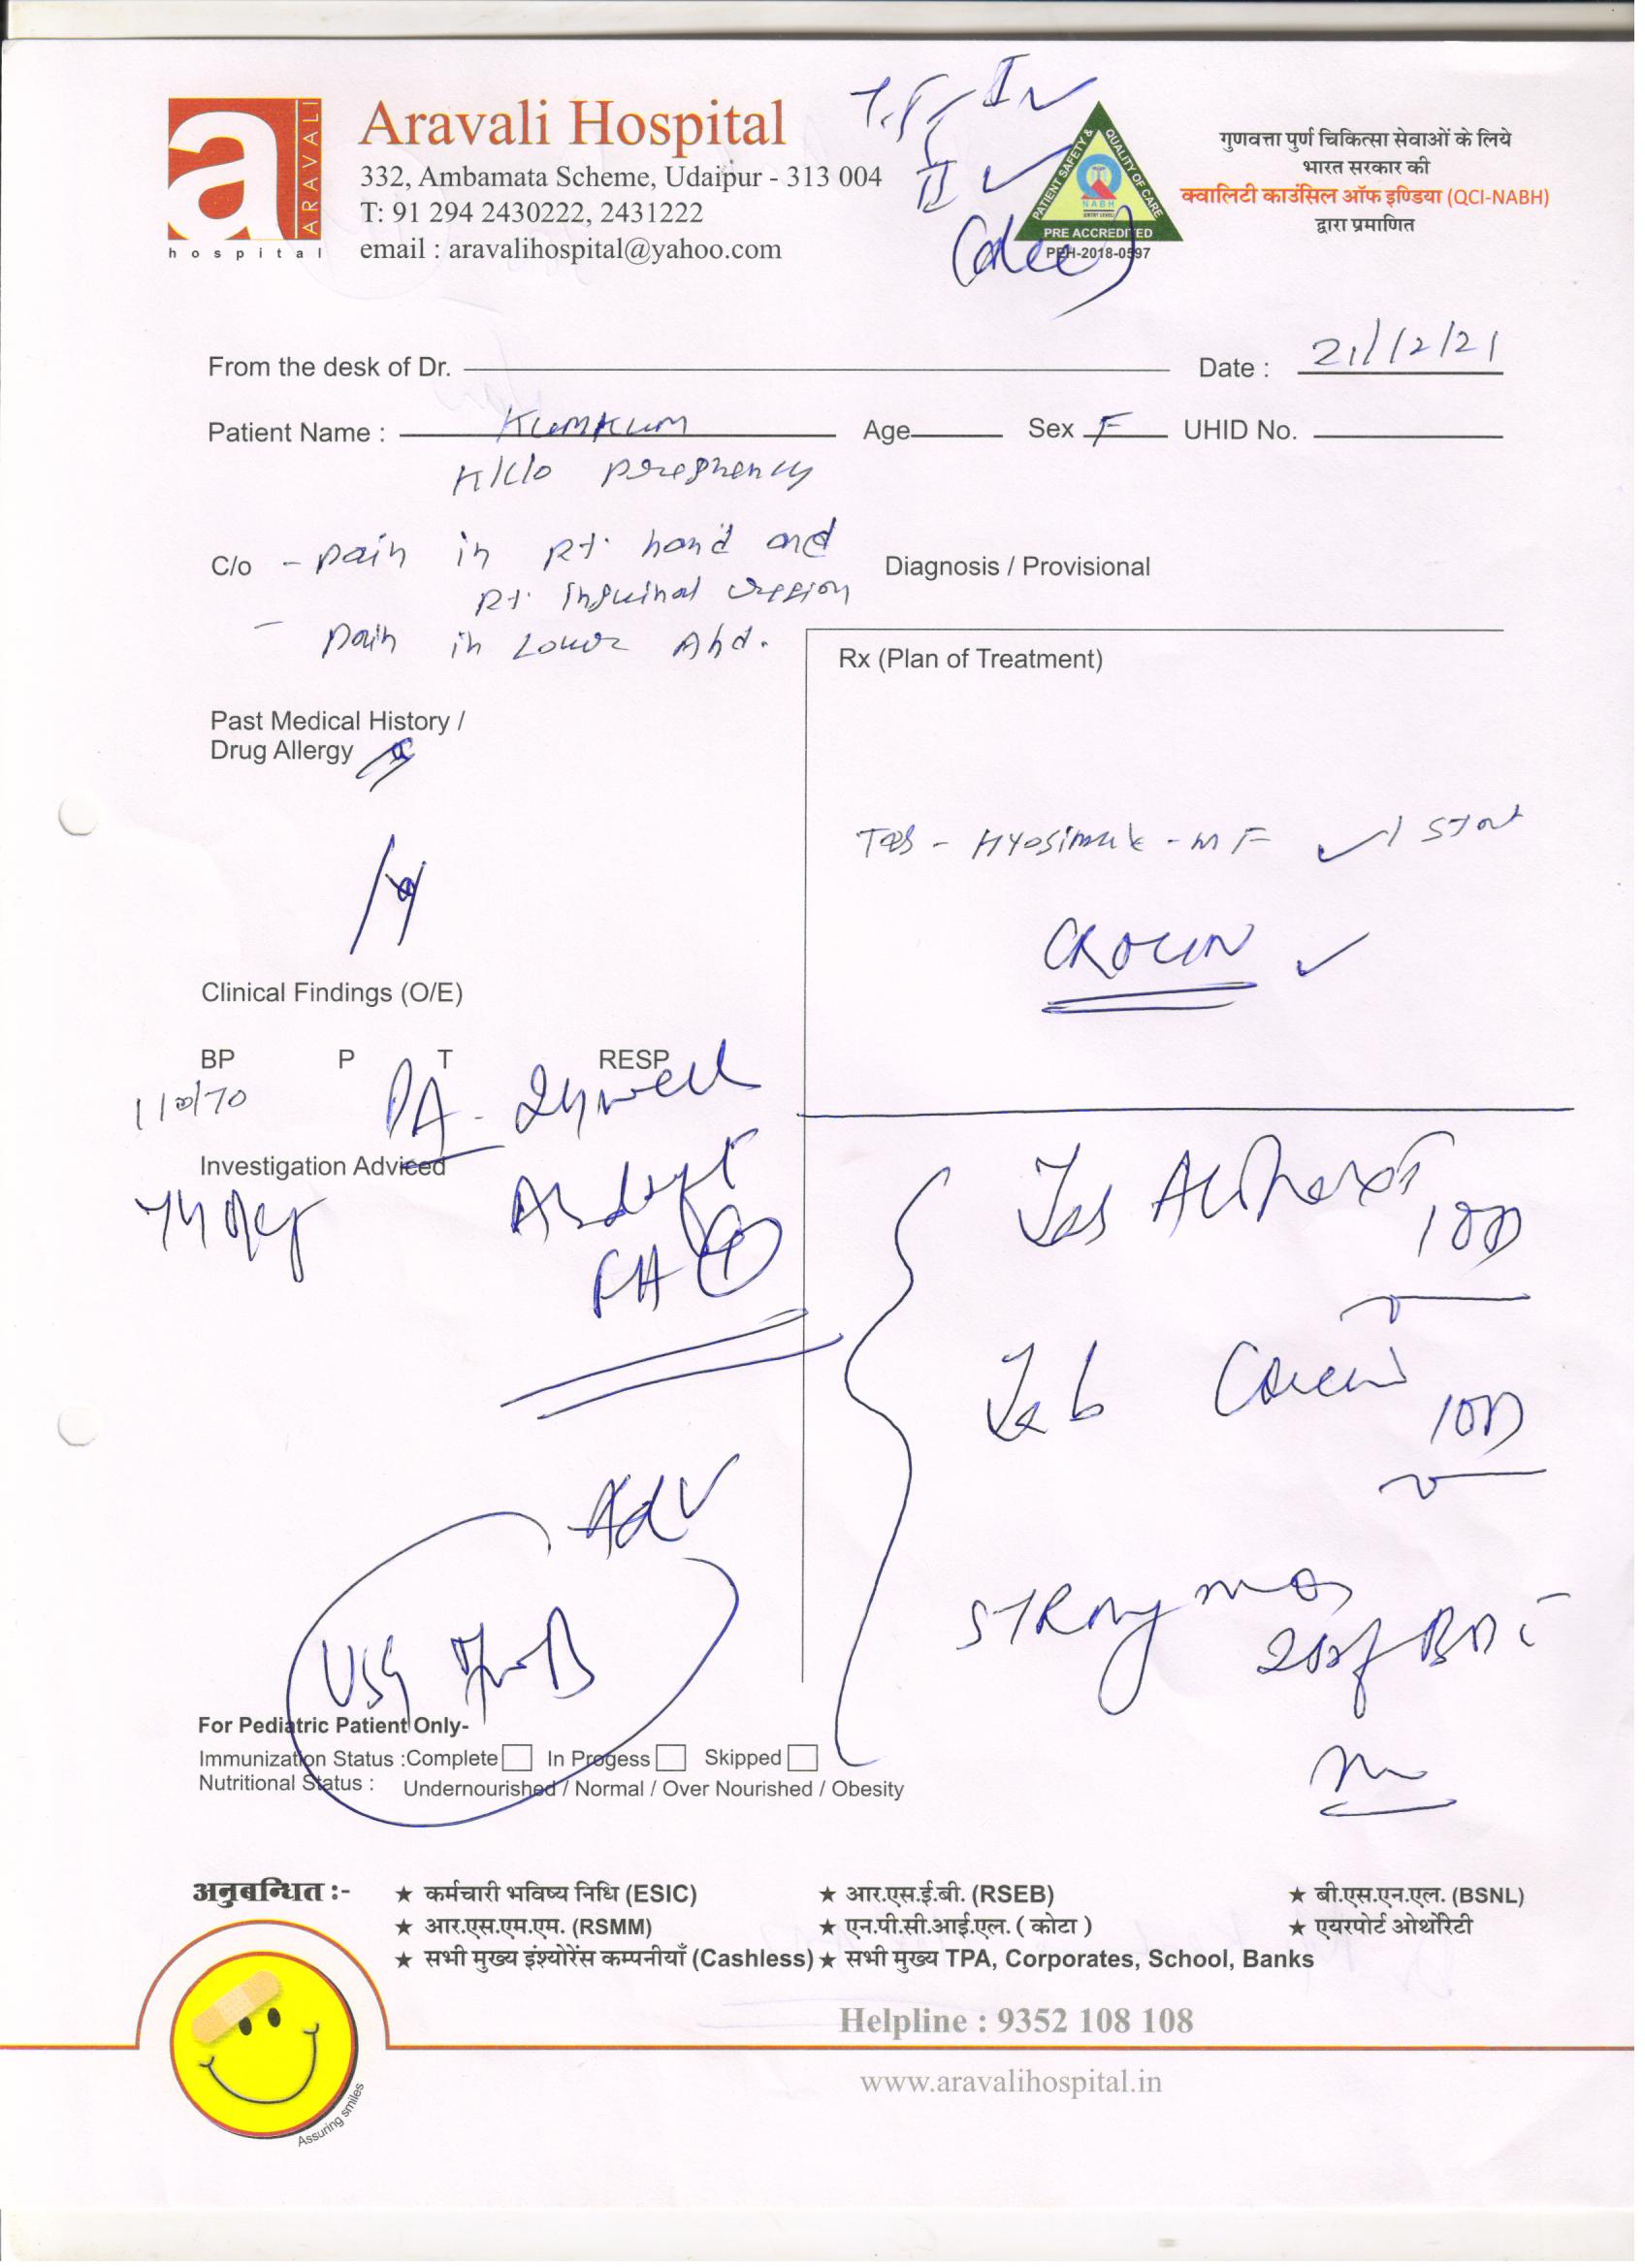 a
ARAVALI
hospital
Aravali Hospital
332, Ambamata Scheme, Udaipur - 313 004
T: 91 294 2430222, 2431222
email : aravalihospital@yahoo.com
PATIENT SAFETY & QUALITY OF CARE
NABH
PRE ACCREDITED
PEH-2018-0597
गुणवत्ता पुर्ण चिकित्सा सेवाओं के लिये
भारत सरकार की
क्वालिटी काउंसिल ऑफ इण्डिया (QCI-NABH)
द्वारा प्रमाणित
From the desk of Dr. Date : 21/12/21
Patient Name : Kumkum Age Sex F UHID No.
K/C/o pregnency
C/o - pain in Rt. hand and
Rt. inguinal region
- pain in Lower Abd.
Diagnosis / Provisional
Rx (Plan of Treatment)
Past Medical History /
Drug Allergy
Tab - Hyosimak - MF 1 Stat
CROCIN
Clinical Findings (O/E)
BP P T RESP
110/70
PA - 24 week
Investigation Adviced
FH +
Tab 1OD
Tab 1OD
Adv
USG
BD
For Pediatric Patient Only-
Immunization Status :Complete In Progess Skipped
Nutritional Status : Undernourished / Normal / Over Nourished / Obesity
अनुबन्धित :-
★ कर्मचारी भविष्य निधि (ESIC) ★ आर.एस.ई.बी. (RSEB) ★ बी.एस.एन.एल. (BSNL)
★ आर.एस.एम.एम. (RSMM) ★ एन.पी.सी.आई.एल. ( कोटा ) ★ एयरपोर्ट ओथोरिटी
★ सभी मुख्य इंश्योरेंस कम्पनीयाँ (Cashless) ★ सभी मुख्य TPA, Corporates, School, Banks
Helpline : 9352 108 108
www.aravalihospital.in
Assuring smiles